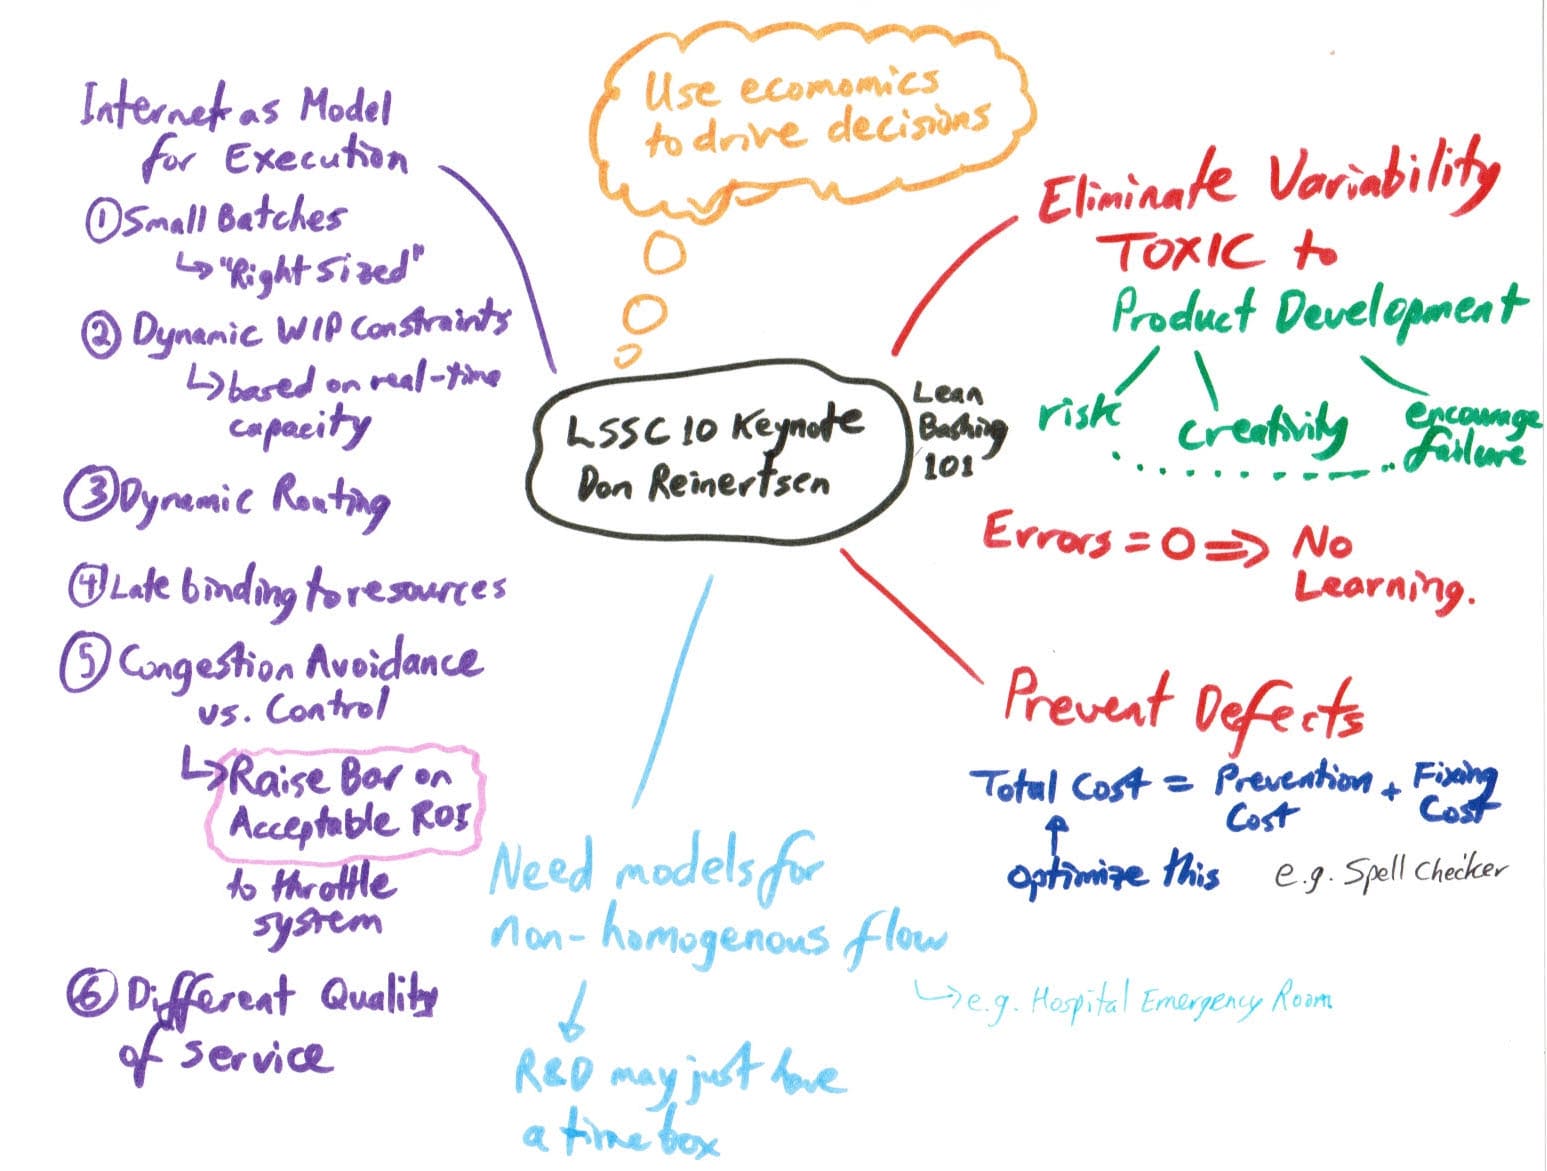 Use ecomomics
to drive decisions
Internet as Model
for Execution
① Small Batches
↳ "Right Sized"
② Dynamic WIP Constraints
↳ based on real-time
capacity
③ Dynamic Routing
④ Late binding to resources
⑤ Congestion Avoidance
vs. Control
↳ Raise Bar on
Acceptable ROI
to throttle
system
⑥ Different Quality
of service
LSSC 10 Keynote
Don Reinertsen
Lean
Bashing
101
Eliminate Variability
TOXIC to
Product Development
risk
creativity
encourage
failure
Errors = 0 => No
Learning.
Prevent Defects
Total Cost = Prevention Cost + Fixing Cost
optimize this
e.g. Spell Checker
Need models for
non-homogenous flow
↳ e.g. Hospital Emergency Room
R&D may just have
a time box